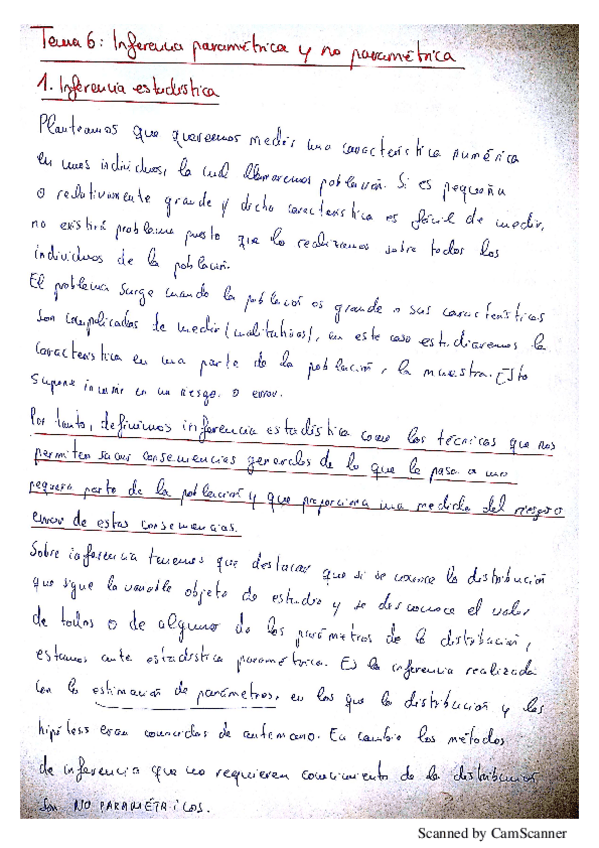 Tema 6: Inferencia paramétrica y no paramétrica
1. Inferencia estadística
Planteamos que queremos medir una característica numérica
en unos individuos, la cual llamaremos población. Si es pequeña
o relativamente grande y dicha característica es fácil de medir,
no existirá problema puesto que lo realizaremos sobre todos los
individuos de la población.
El problema surge cuando la población es grande o sus características
son complicadas de medir (cualitativas), en este caso estudiaremos la
característica en una parte de la población, la muestra. Esto
supone incurrir en un riesgo o error.
Por tanto, definimos inferencia estadística como las técnicas que nos
permiten sacar consecuencias generales de lo que le pasa a una
pequeña parte de la población y que proporciona una medida del riesgo o
error de estas consecuencias.
Sobre inferencia tenemos que destacar que si se conoce la distribución
que sigue la variable objeto de estudio y se desconoce el valor
de todos o de alguno de los parámetros de la distribución,
estamos ante estadística paramétrica. Es la inferencia realizada
con la estimación de parámetros, en los que la distribución y las
hipótesis eran conocidas de antemano. En cambio los métodos
de inferencia que no requieren conocimiento de la distribución
son NO PARAMÉTRICOS.
Scanned by CamScanner